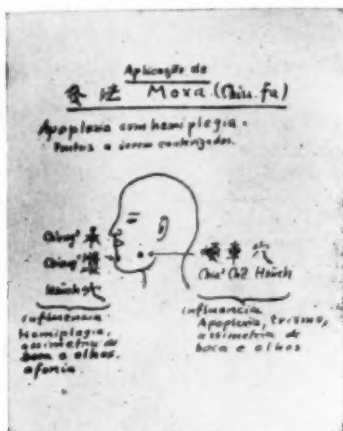 Aplicação de
灸法 Moxa (Chiu. fa)
Apoplexia com hemiplagia.
Pontos a serem cauterizados.
承
漿
穴 Hsüeh
influencia
Hemiplagia,
assimetria de
boca e olhos,
afonia
頰車穴
Chia² Ch'ê Hsüeh
influencia
Apoplexia, trismo,
assimetria de
boca e olhos